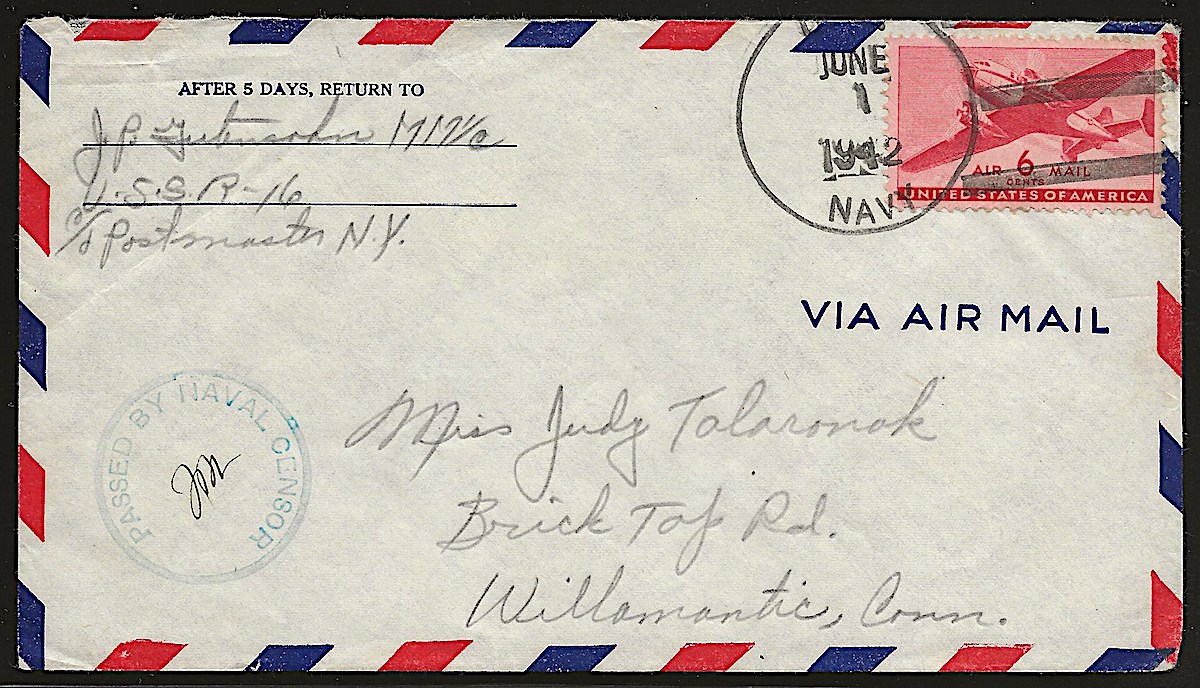 AFTER 5 DAYS, RETURN TO
J. P. MM1/c
U.S.S. R-16
c/o Postmaster N.Y.
JUNE
1
1942
NAVY
AIR 6 MAIL
CENTS
UNITED STATES OF AMERICA
VIA AIR MAIL
PASSED BY NAVAL CENSOR
Miss Judy Talaronak
Brick Top Rd.
Willamantic, Conn.